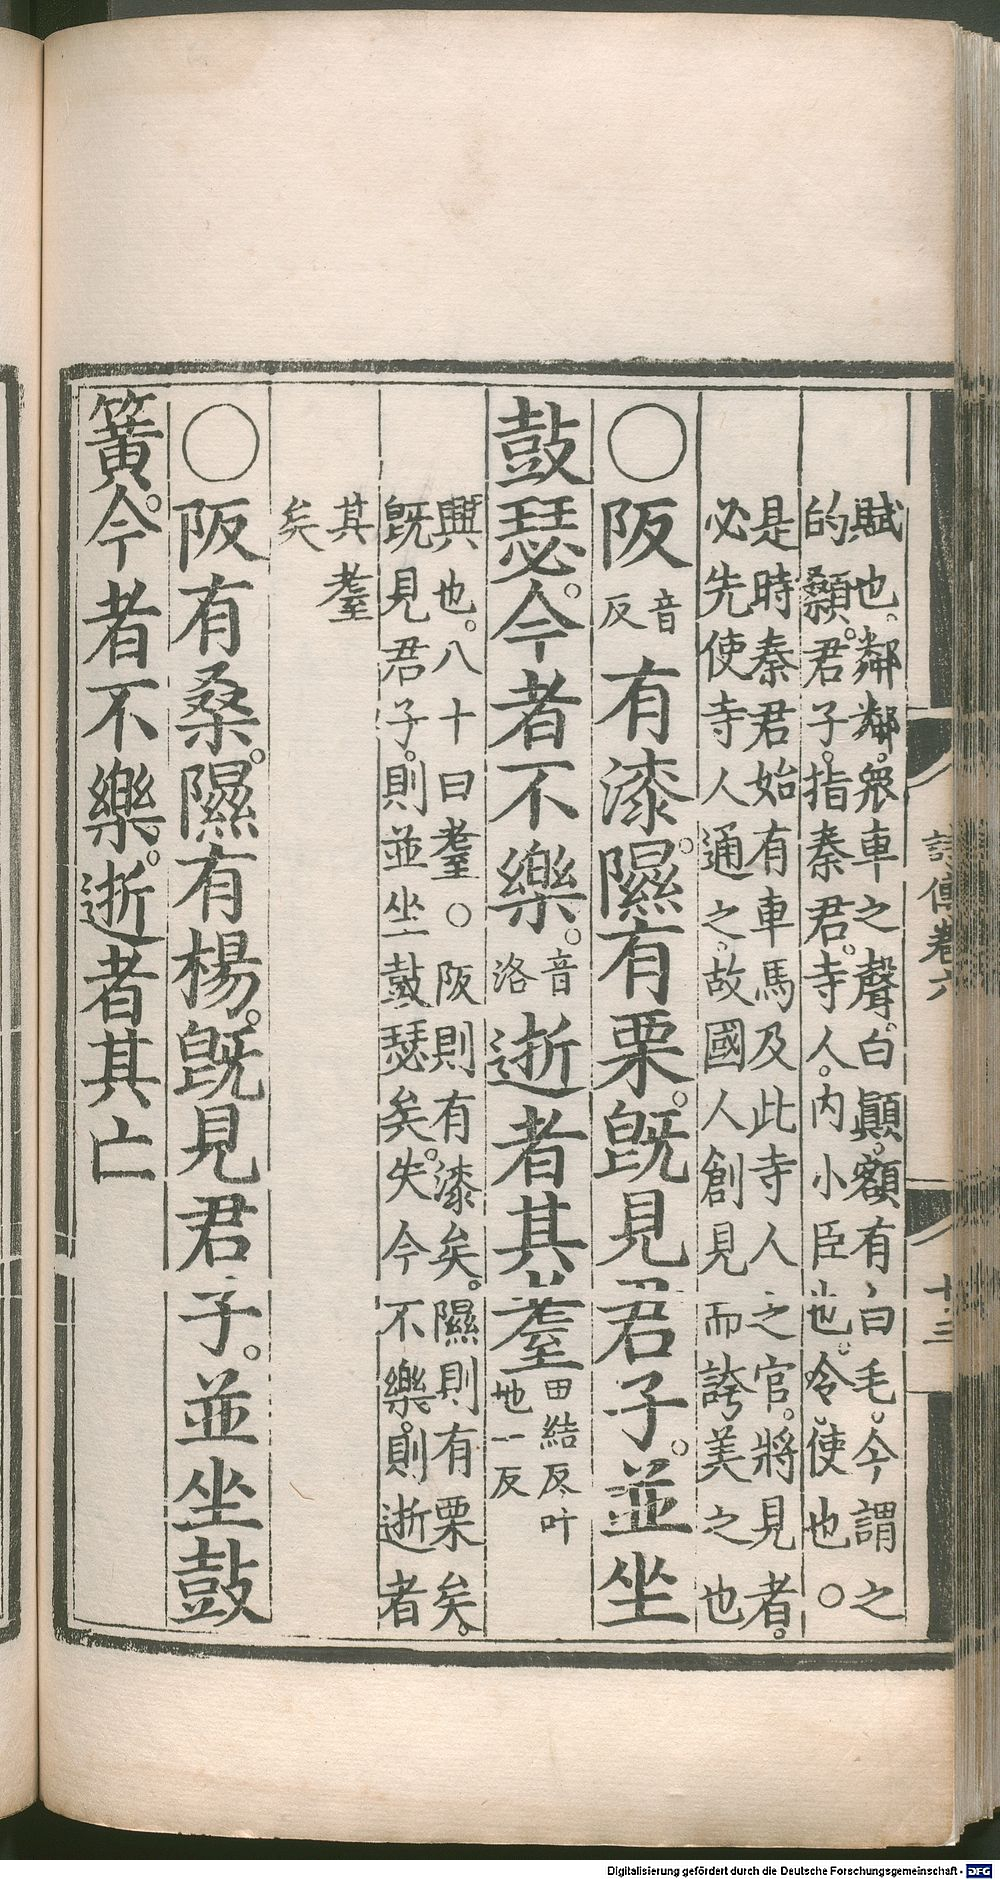 賦也。鄰鄰。衆車之聲。白顚。額有白毛。今謂之
的顙。君子。指秦君。寺人。内小臣也。令。使也○
是時秦君始有車馬及此寺人之官。將見者。
必先使寺人通之。故國人創見而誇美之也
○阪音反有漆。隰有栗。旣見君子。並坐
鼓瑟。今者不樂。音洛逝者其耋田結反叶地一反
興也。八十曰耋○阪則有漆矣。隰則有栗矣。
旣見君子。則並坐鼓瑟矣。失今不樂。則逝者
其耋
矣
○阪有桑。隰有楊。旣見君子。並坐鼓
簧。今者不樂。逝者其亡
詩傳卷六
十三
Digitalisierung gefördert durch die Deutsche Forschungsgemeinschaft - DFG